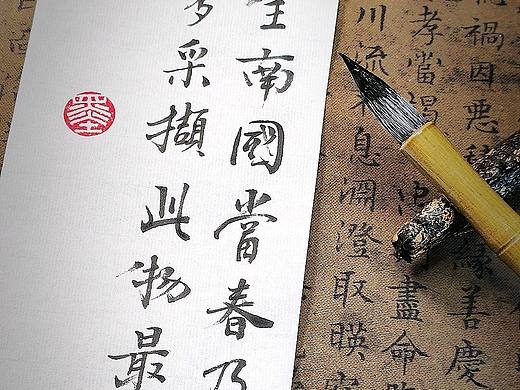 禍因悪
緣善慶
孝當竭
盡命
川流不息淵澄取暎
生南國當春乃
多采擷此物最
墨